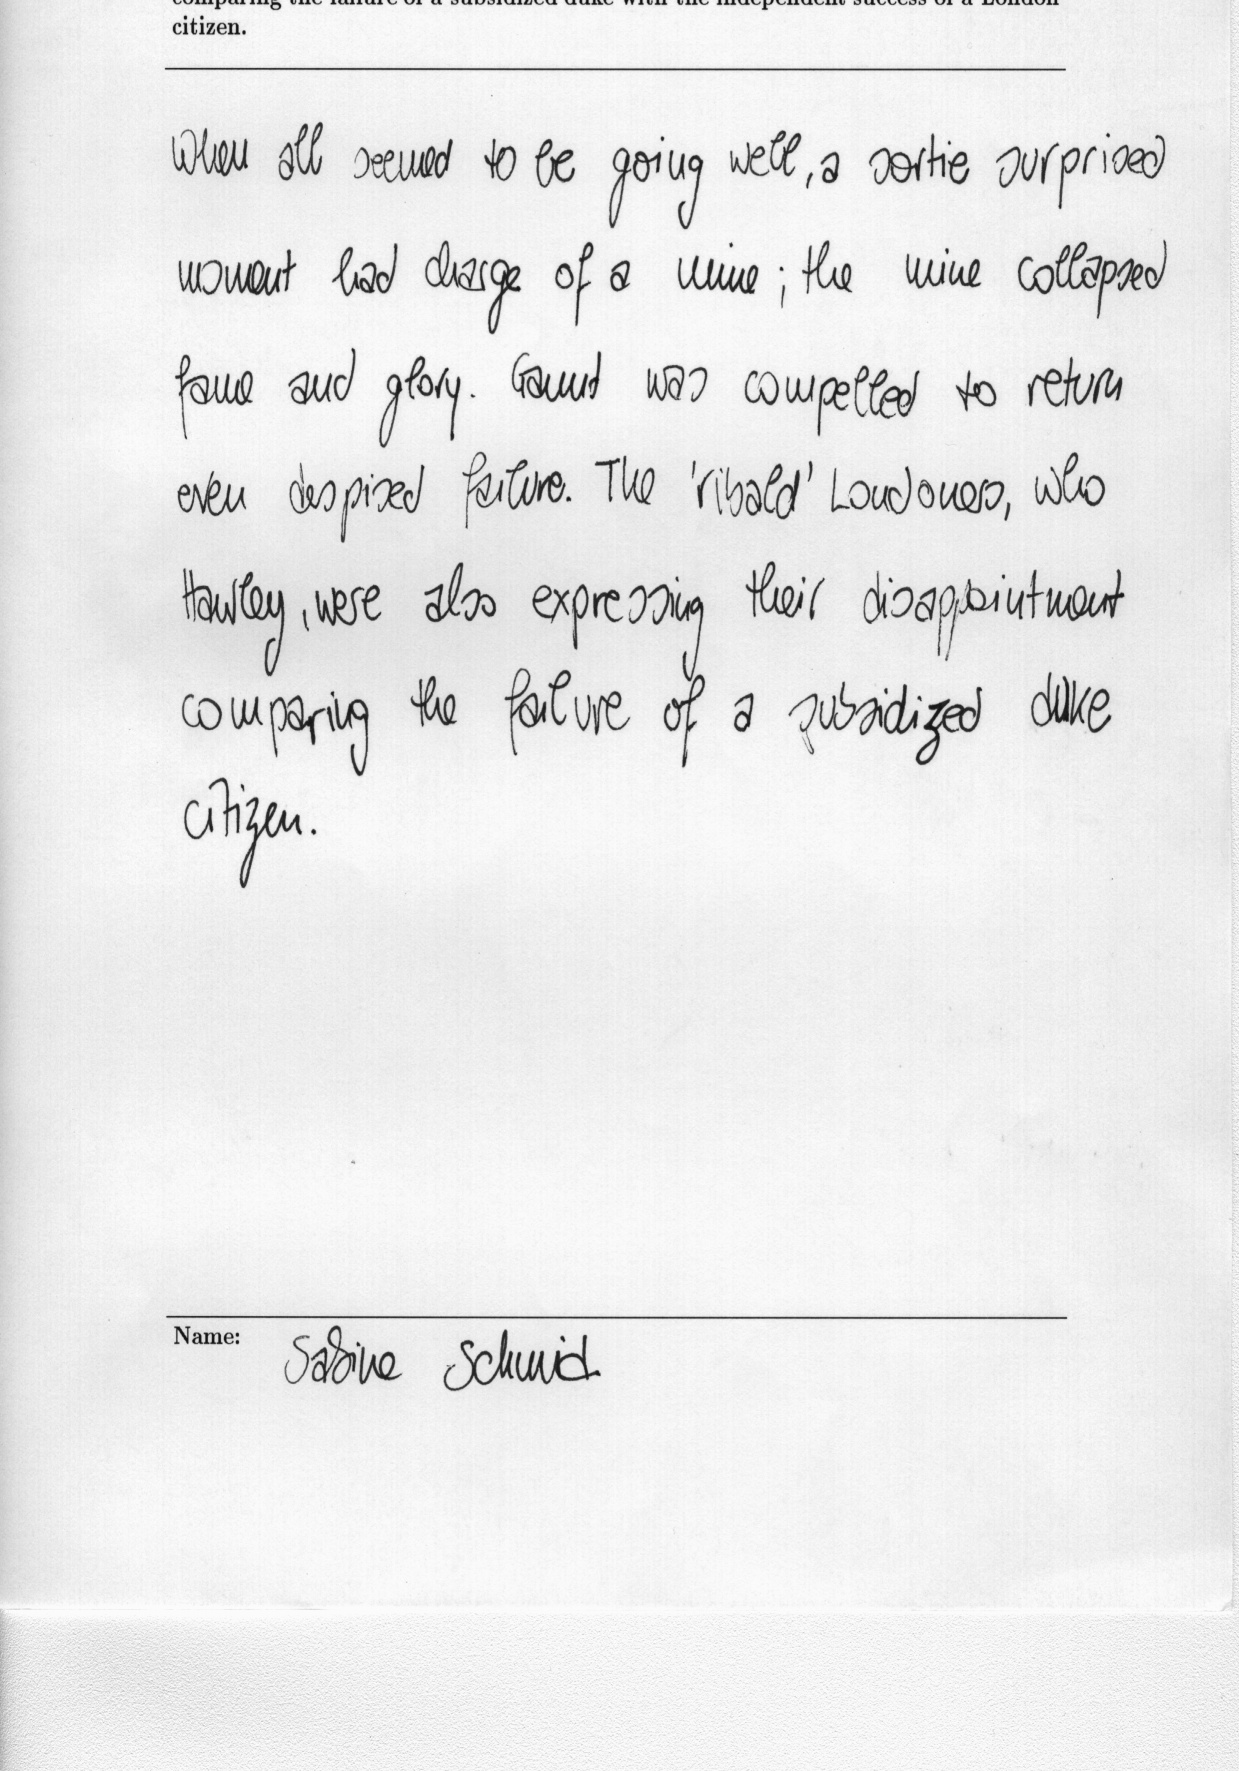 comparing the failure of a subsidized duke with the independent success of a London
citizen.
When all seemed to be going well, a sortie surprised
moment had charge of a mine; the mine collapsed
fame and glory. Gaunt was compelled to return
even despised failure. The 'ribald' Londoners, who
Hawley, were also expressing their disappointment
comparing the failure of a subsidized duke
citizen.
Name: Sabine Schmid